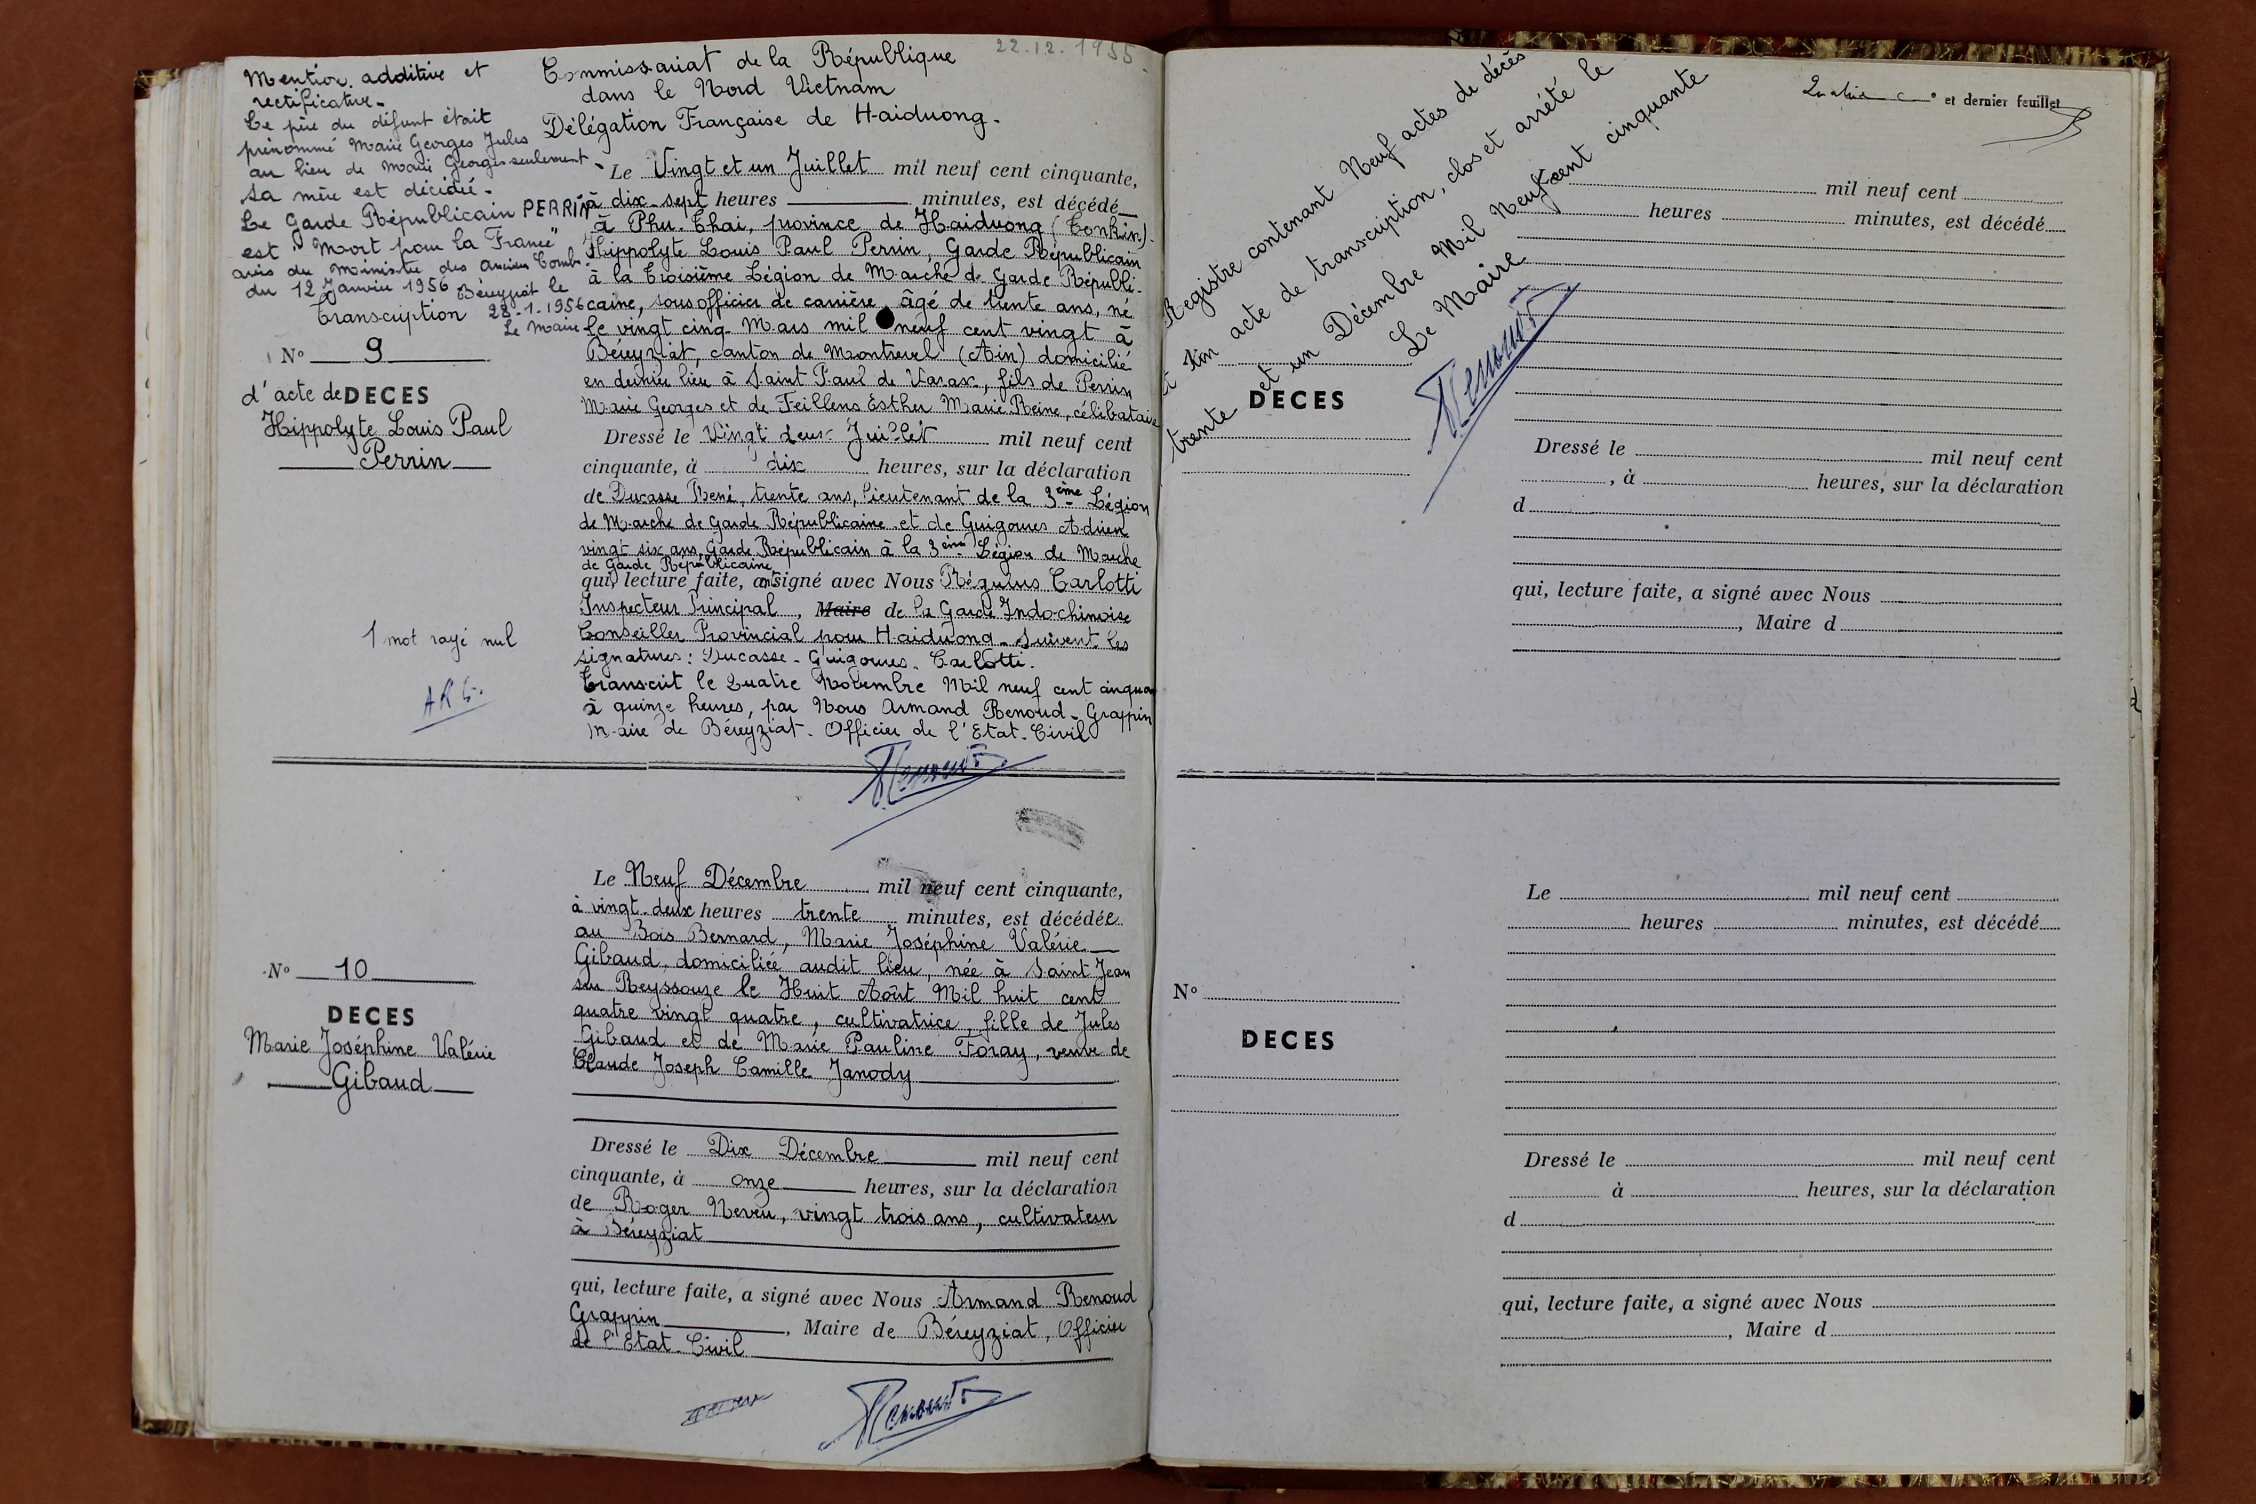 22.12.1955
Mention additive et
rectificative.
Le père du défunt était
prénommé Marie Georges Jules
au lieu de Marie Georges seulement
sa mère est décédée.
Le Garde Républicain PERRIN
est "Mort pour la France"
avis du Ministre des Anciens Combt
du 12 Janvier 1956 Béreyziat le
28.1.1956
Le Maire
Transcription
N° 9
d'acte de DECES
Hippolyte Louis Paul
Perrin
1 mot rayé nul
Commissariat de la République
dans le Nord Vietnam
Délégation Française de Haiduong.
Le Vingt et un Juillet mil neuf cent cinquante,
à dix-sept heures minutes, est décédé
à Phu-Thai, province de Haiduong (Tonkin).
Hippolyte Louis Paul Perrin, Garde Républicain
à la Troisième Légion de Marche de Garde Républi-
caine, sous officier de carrière, âgé de trente ans, né
le vingt cinq Mars mil neuf cent vingt à
Béreyziat, canton de Montrevel (Ain) domicilié
en dernier lieu à Saint Paul de Varax, fils de Perrin
Marie Georges et de Feillens Esther Marie Reine, célibataire
Dressé le Vingt deux Juillet mil neuf cent
cinquante, à dix heures, sur la déclaration
de Ducasse René, trente ans, lieutenant de la 3ème Légion
de Marche de Garde Républicaine et de Guigoures Adrien
vingt six ans, Garde Républicain à la 3ème Légion de Marche
de Garde Républicaine
qui, lecture faite, ont signé avec Nous Séguius Carlotti
Inspecteur Principal, Maire de la Garde Indochinoise
Conseiller Provincial pour Haiduong. Suivent les
signatures: Ducasse - Guigoures - Carlotti.
Transcrit le Quatre Novembre Mil neuf cent cinquante
à quinze heures, par Nous Armand Renoud-Grappin
Maire de Béreyziat. Officier de l'Etat-Civil
N° 10
DECES
Marie Joséphine Valérie
Gibaud
Le Neuf Décembre mil neuf cent cinquante,
à vingt-deux heures trente minutes, est décédée
au Bois Bernard, Marie Joséphine Valérie
Gibaud, domiciliée audit lieu, née à Saint Jean
sur Reyssouze le Huit Août Mil huit cent
quatre vingt quatre, cultivatrice, fille de Jules
Gibaud et de Marie Pauline Foray, veuve de
Claude Joseph Camille Janody
Dressé le Dix Décembre mil neuf cent
cinquante, à onze heures, sur la déclaration
de Roger Neveu, vingt trois ans, cultivateur
à Béreyziat
qui, lecture faite, a signé avec Nous Armand Renoud
Grappin, Maire de Béreyziat, Officier
de l'Etat-Civil
et dernier feuillet
Registre contenant Neuf actes de décès
et Un acte de transcription, clos et arrêté le
trente et un Décembre Mil Neuf cent cinquante
Le Maire
mil neuf cent
heures minutes, est décédé
DECES
Dressé le mil neuf cent
, à heures, sur la déclaration
d
qui, lecture faite, a signé avec Nous
, Maire d
Le mil neuf cent
heures minutes, est décédé
N°
DECES
Dressé le mil neuf cent
à heures, sur la déclaration
d
qui, lecture faite, a signé avec Nous
, Maire d